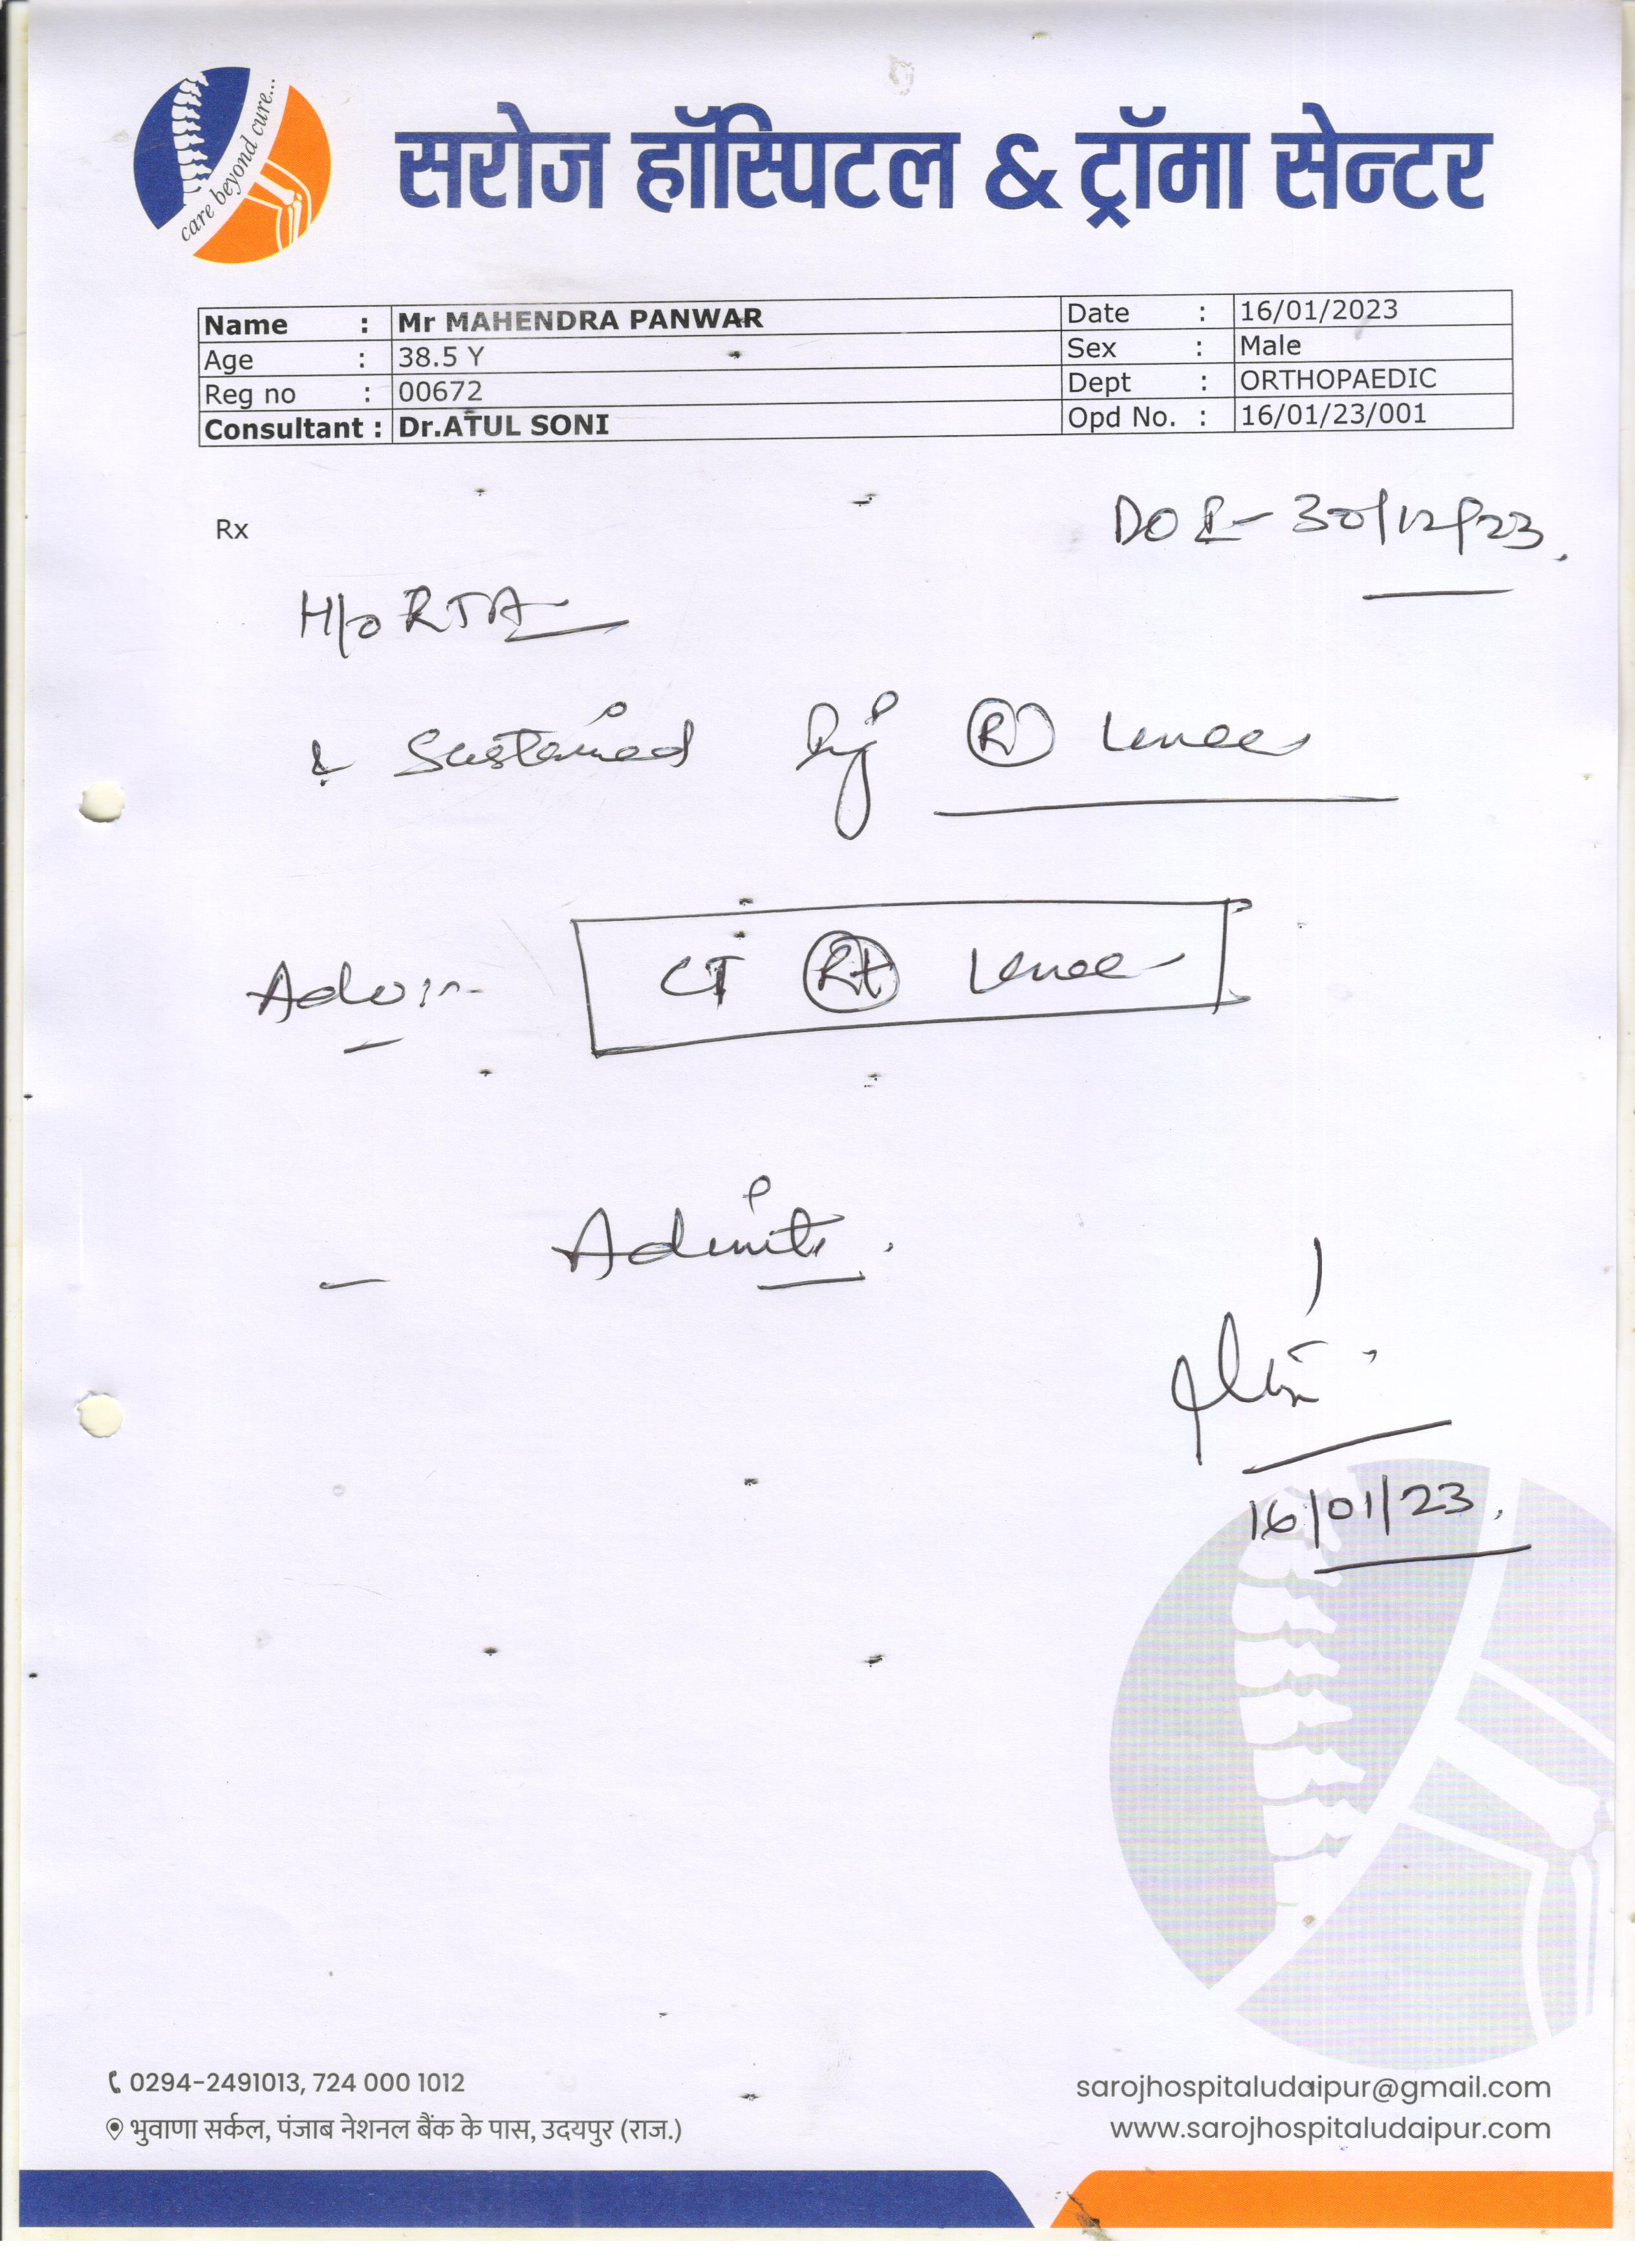 care beyond cure...
सरोज हॉस्पिटल & ट्रॉमा सेन्टर
Name : Mr MAHENDRA PANWAR Date : 16/01/2023
Age : 38.5 Y Sex : Male
Reg no : 00672 Dept : ORTHOPAEDIC
Consultant : Dr.ATUL SONI Opd No. : 16/01/23/001
Rx
30/12/23.
H/o RTA
& Sustained Inj (R) knee
CT (Rt) knee
- Admit.
16/01/23.
0294-2491013, 724 000 1012
sarojhospitaludaipur@gmail.com
भुवाणा सर्कल, पंजाब नेशनल बैंक के पास, उदयपुर (राज.)
www.sarojhospitaludaipur.com